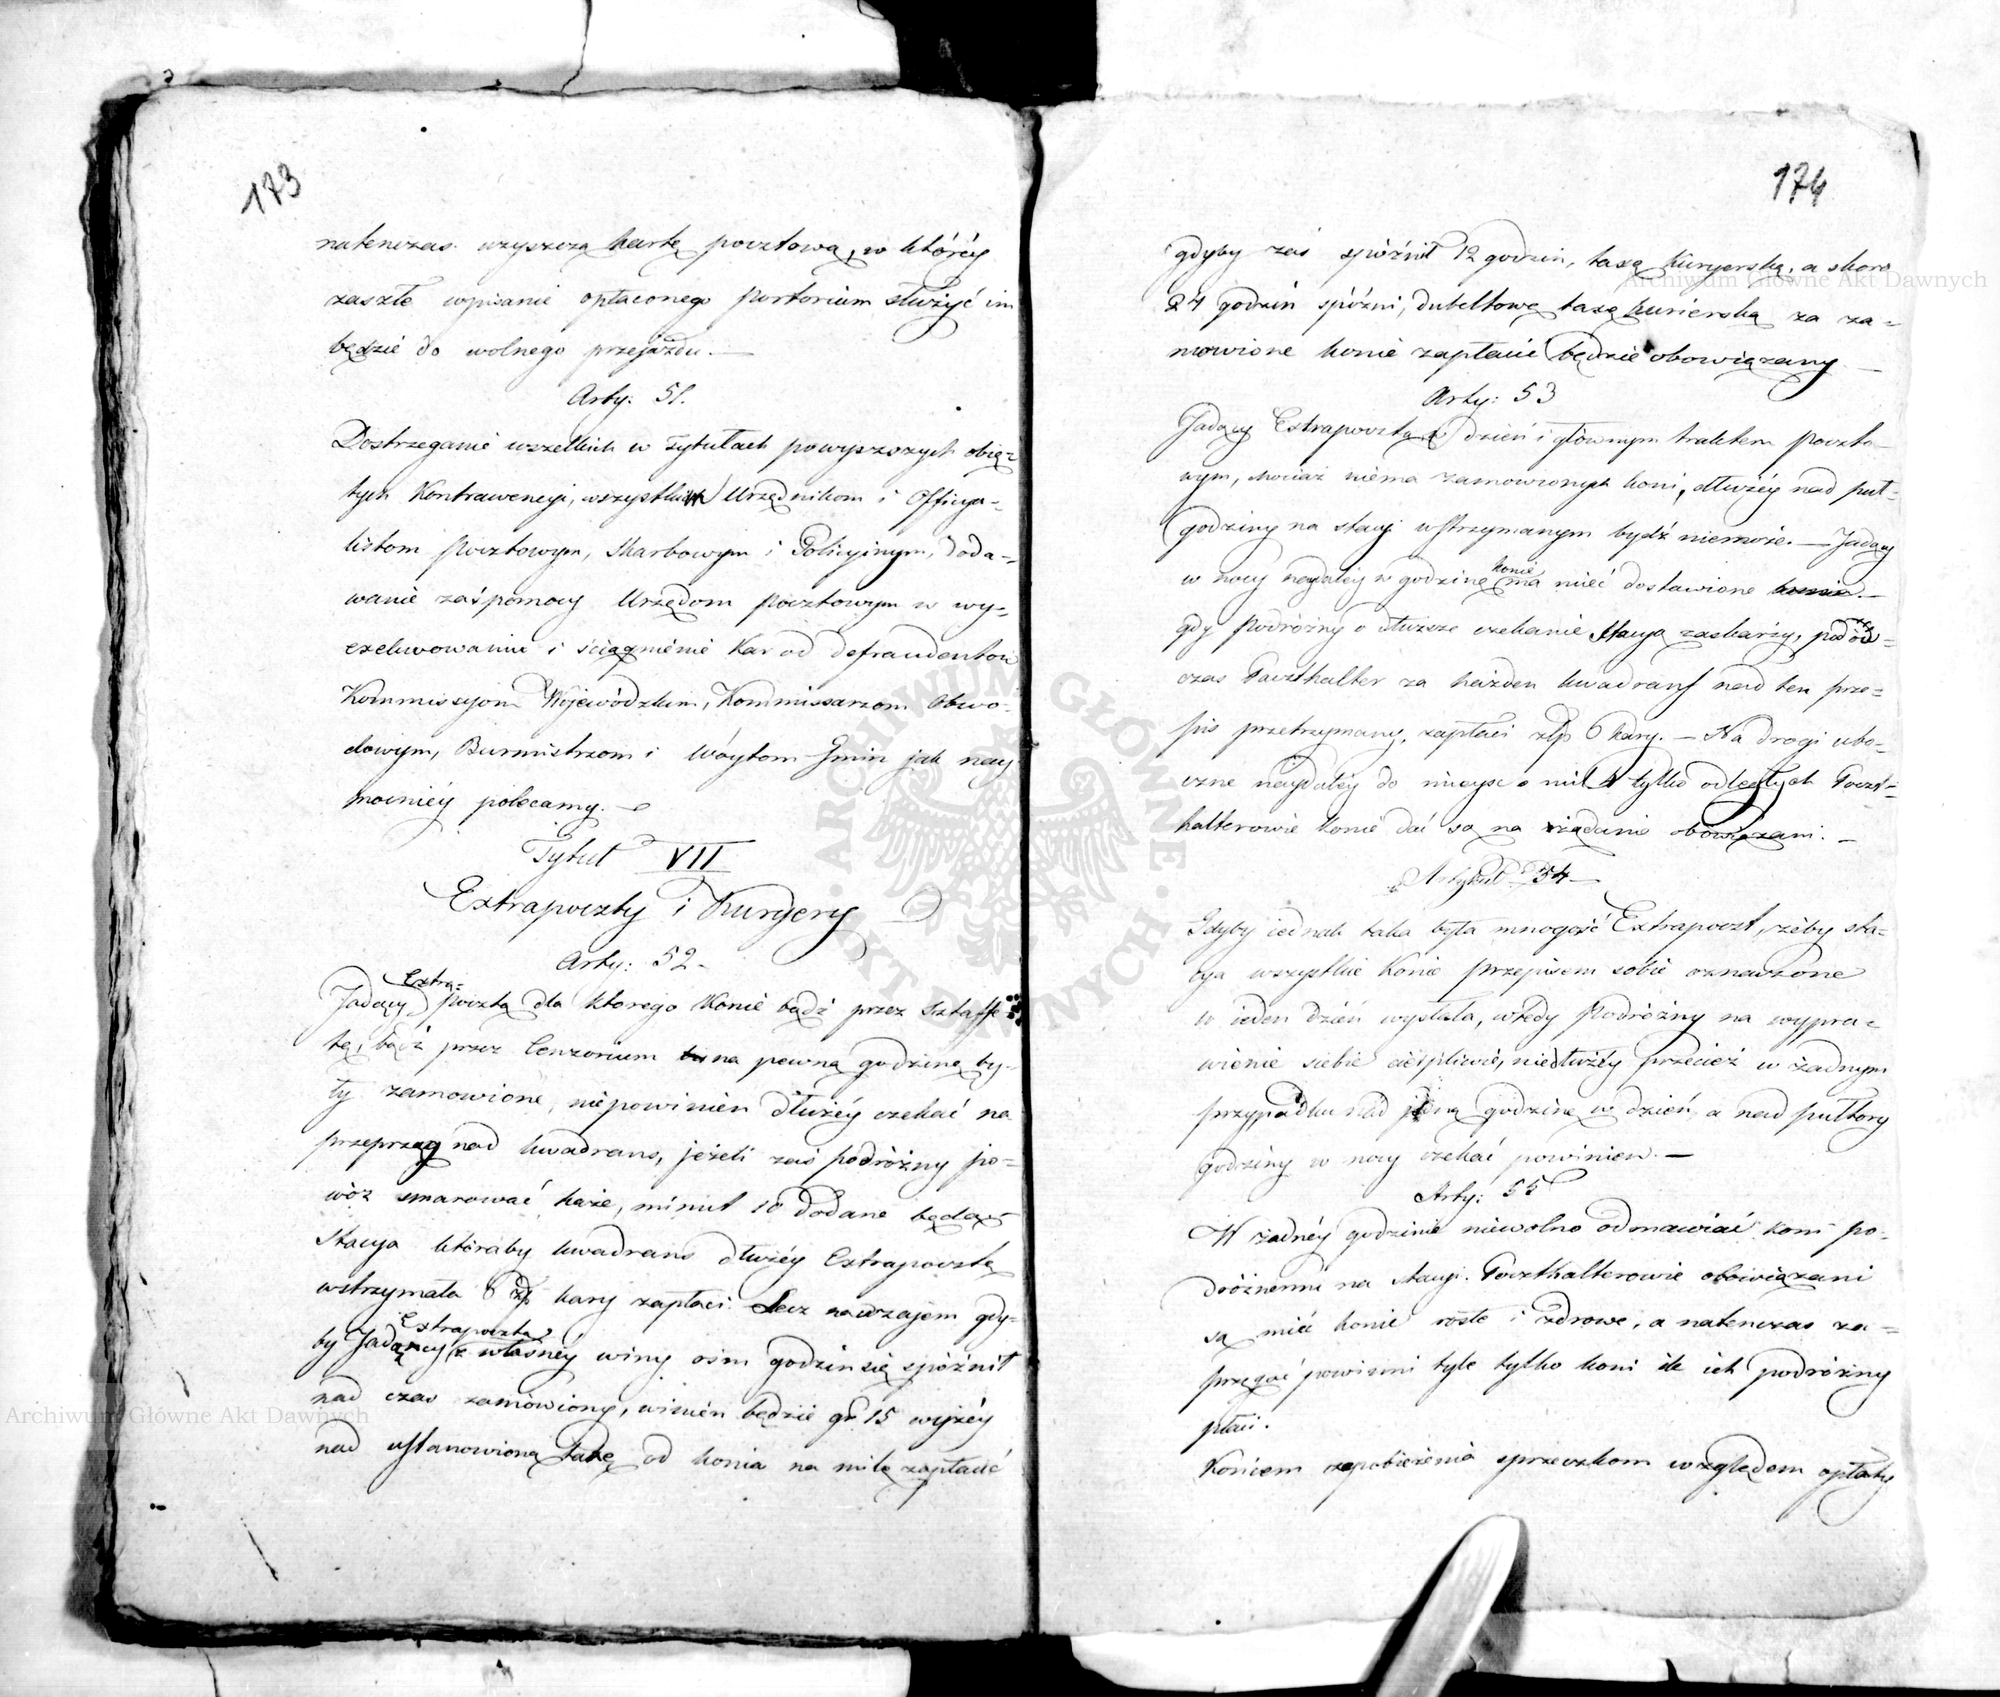 173
natenczas uzyszczą kartę pocztową, w któréy
zaszłe wpisanie opłaconego portorium służyć im
będzie do wolnego przejazdu. —
Arty: 51.
Dostrzeganie wszelkich w Tytułach powyższych obię-
tych Kontrawencyi, wszystkim Urzędnikom i Officya-
listom Pocztowym, Skarbowym i Policyinym, doda-
wanie zaś pomocy Urzędom pocztowym w wy-
exekwowaniu i ściągnienie Kar od defraudentów
Kommissyom Wojewódzkim, Kommissarzom Obwo-
dowym, Burmistrzom i Wóytom Gmin jak nay
mocniéy polecamy. —
Tytuł VII
Extrapoczty i Kuryery
Arty: 52.
Extra-
Jadący pocztą dla ktorego Konie bądź przez Sztaffe-
tę, bądź przez Cenzorium na pewną godzinę by-
ły zamowione, niepowinien dłużéy czekać na
przeprząg nad kwadrans, jeżeli zaś podróżny po-
wóz smarować każe, minut 10 dodane będą
Stacya któraby kwadrans dłużéy Extrapocztę
wstrzymała 6 złp kary zapłaci. Lecz nawzajem gdy-
Extrapocztą
by Jadący z własnéy winy ośm godzin się spóźnił
nad czas zamówiony, winien będzie gr 15 wyżéy
nad ustanowioną taxę od konia na milę zapłacić
174
gdyby zaś spóźnił 12 godzin, taxę kuryerską, a skoro
24 godzin spóźni, dubeltowę taxę kurierską za za-
mowione konie zapłacić będzie obowiązany. —
Arty: 53
Jadący Extrapocztą w dzień i głównym traktem poczto-
wym, chociaż niema zamowionych koni, dłużéy nad puł-
godziny na stacyi wstrzymanym bydź niemoże. — Jadący
konie
w nocy naydaléy w godzinę ma mieć dostawione konie. —
gdy podróżny o dłuższe czekanie Stacyą zaskarży, pod ów-
czas Poczthalter za każden kwadrans nad ten prze-
pis przetrzymany, zapłaci złp 6 kary. — Na drogi ubo-
czne naydaléy do mieysc o mil 4 tylko odległych Poczt-
halterowie konie dać są na żądanie obowiązani. —
Artykuł 54 —
Gdyby iednak taka była mnogość Extrapoczt, żeby sta-
cya wszystkie Konie przepisem sobie oznaczone
w ieden dzień wysłała, wtedy Podróżny na wypra-
wienie siebie cierpliwie, niedłużéy przecież w żadnym
przypadku nad jedną godzinę w dzień, a nad pułtory
godziny w nocy czekać powinien. —
Arty: 55
W żadnéy godzinie niewolno odmawiać koni po-
dróżnemu na Stacyi. Poczthalterowie obowiązani
są mieć konie rosłe i zdrowe, a natenczas za-
przęgać powinni tyle tylko koni ile ich podróżny
płaci.
Końcem zapobieżenia sprzeczkom względem opłaty